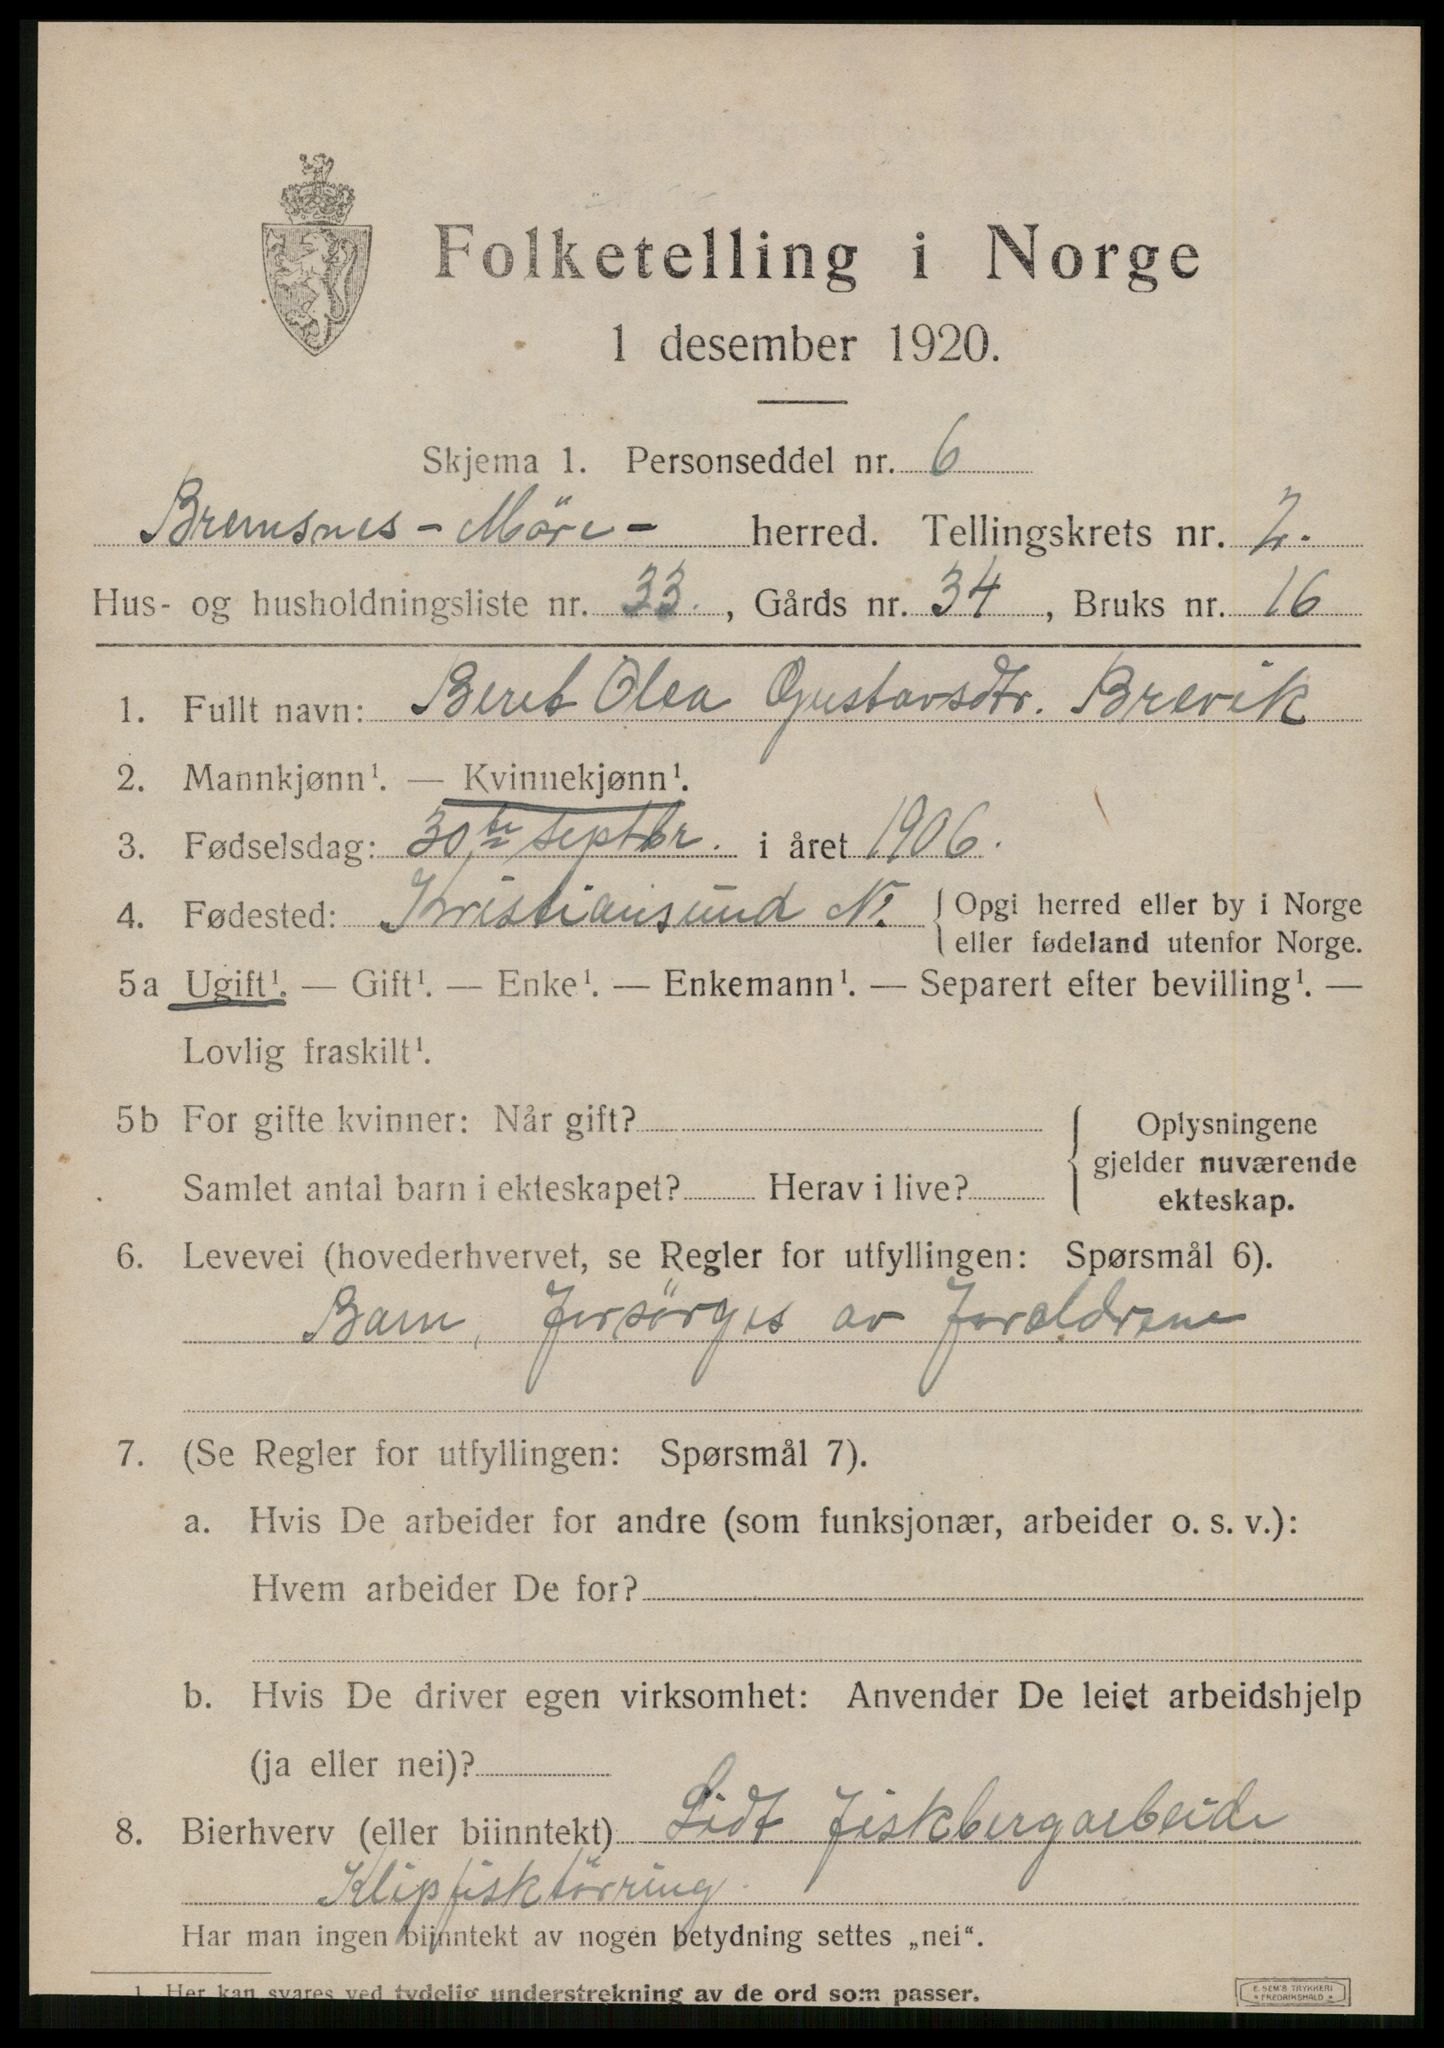 Folketelling i Norge
1 desember 1920.
Skjema 1. Personseddel nr. 6
Bremsnes - Möre - herred. Tellingskrets nr. 2.
Hus- og husholdningsliste nr. 33., Gårds nr. 34, Bruks nr. 16
1. Fullt navn: Beret Olea Gustavsdtr. Brevik
2. Mannkjønn¹. — Kvinnekjønn¹.
3. Fødselsdag: 30te septbr. i året 1906.
4. Fødested: Kristiansund N. { Opgi herred eller by i Norge
eller fødeland utenfor Norge.
5a Ugift¹. — Gift¹. — Enke¹. — Enkemann¹. — Separert efter bevilling¹. —
Lovlig fraskilt¹.
5b For gifte kvinner: Når gift? { Oplysningene
gjelder nuværende
Samlet antal barn i ekteskapet? Herav i live? ekteskap.
6. Levevei (hovederhvervet, se Regler for utfyllingen: Spørsmål 6).
Barn, forsörges av foreldrene
7. (Se Regler for utfyllingen: Spørsmål 7).
a. Hvis De arbeider for andre (som funksjonær, arbeider o. s. v.):
Hvem arbeider De for?
b. Hvis De driver egen virksomhet: Anvender De leiet arbeidshjelp
(ja eller nei)?
8. Bierhverv (eller biinntekt) Lidt fiskbergarbeide
Klipfisktörring.
Har man ingen biinntekt av nogen betydning settes „nei“.
1. Her kan svares ved tydelig understrekning av de ord som passer.
E. SEM'S TRYKKERI
* FREDRIKSHALD *